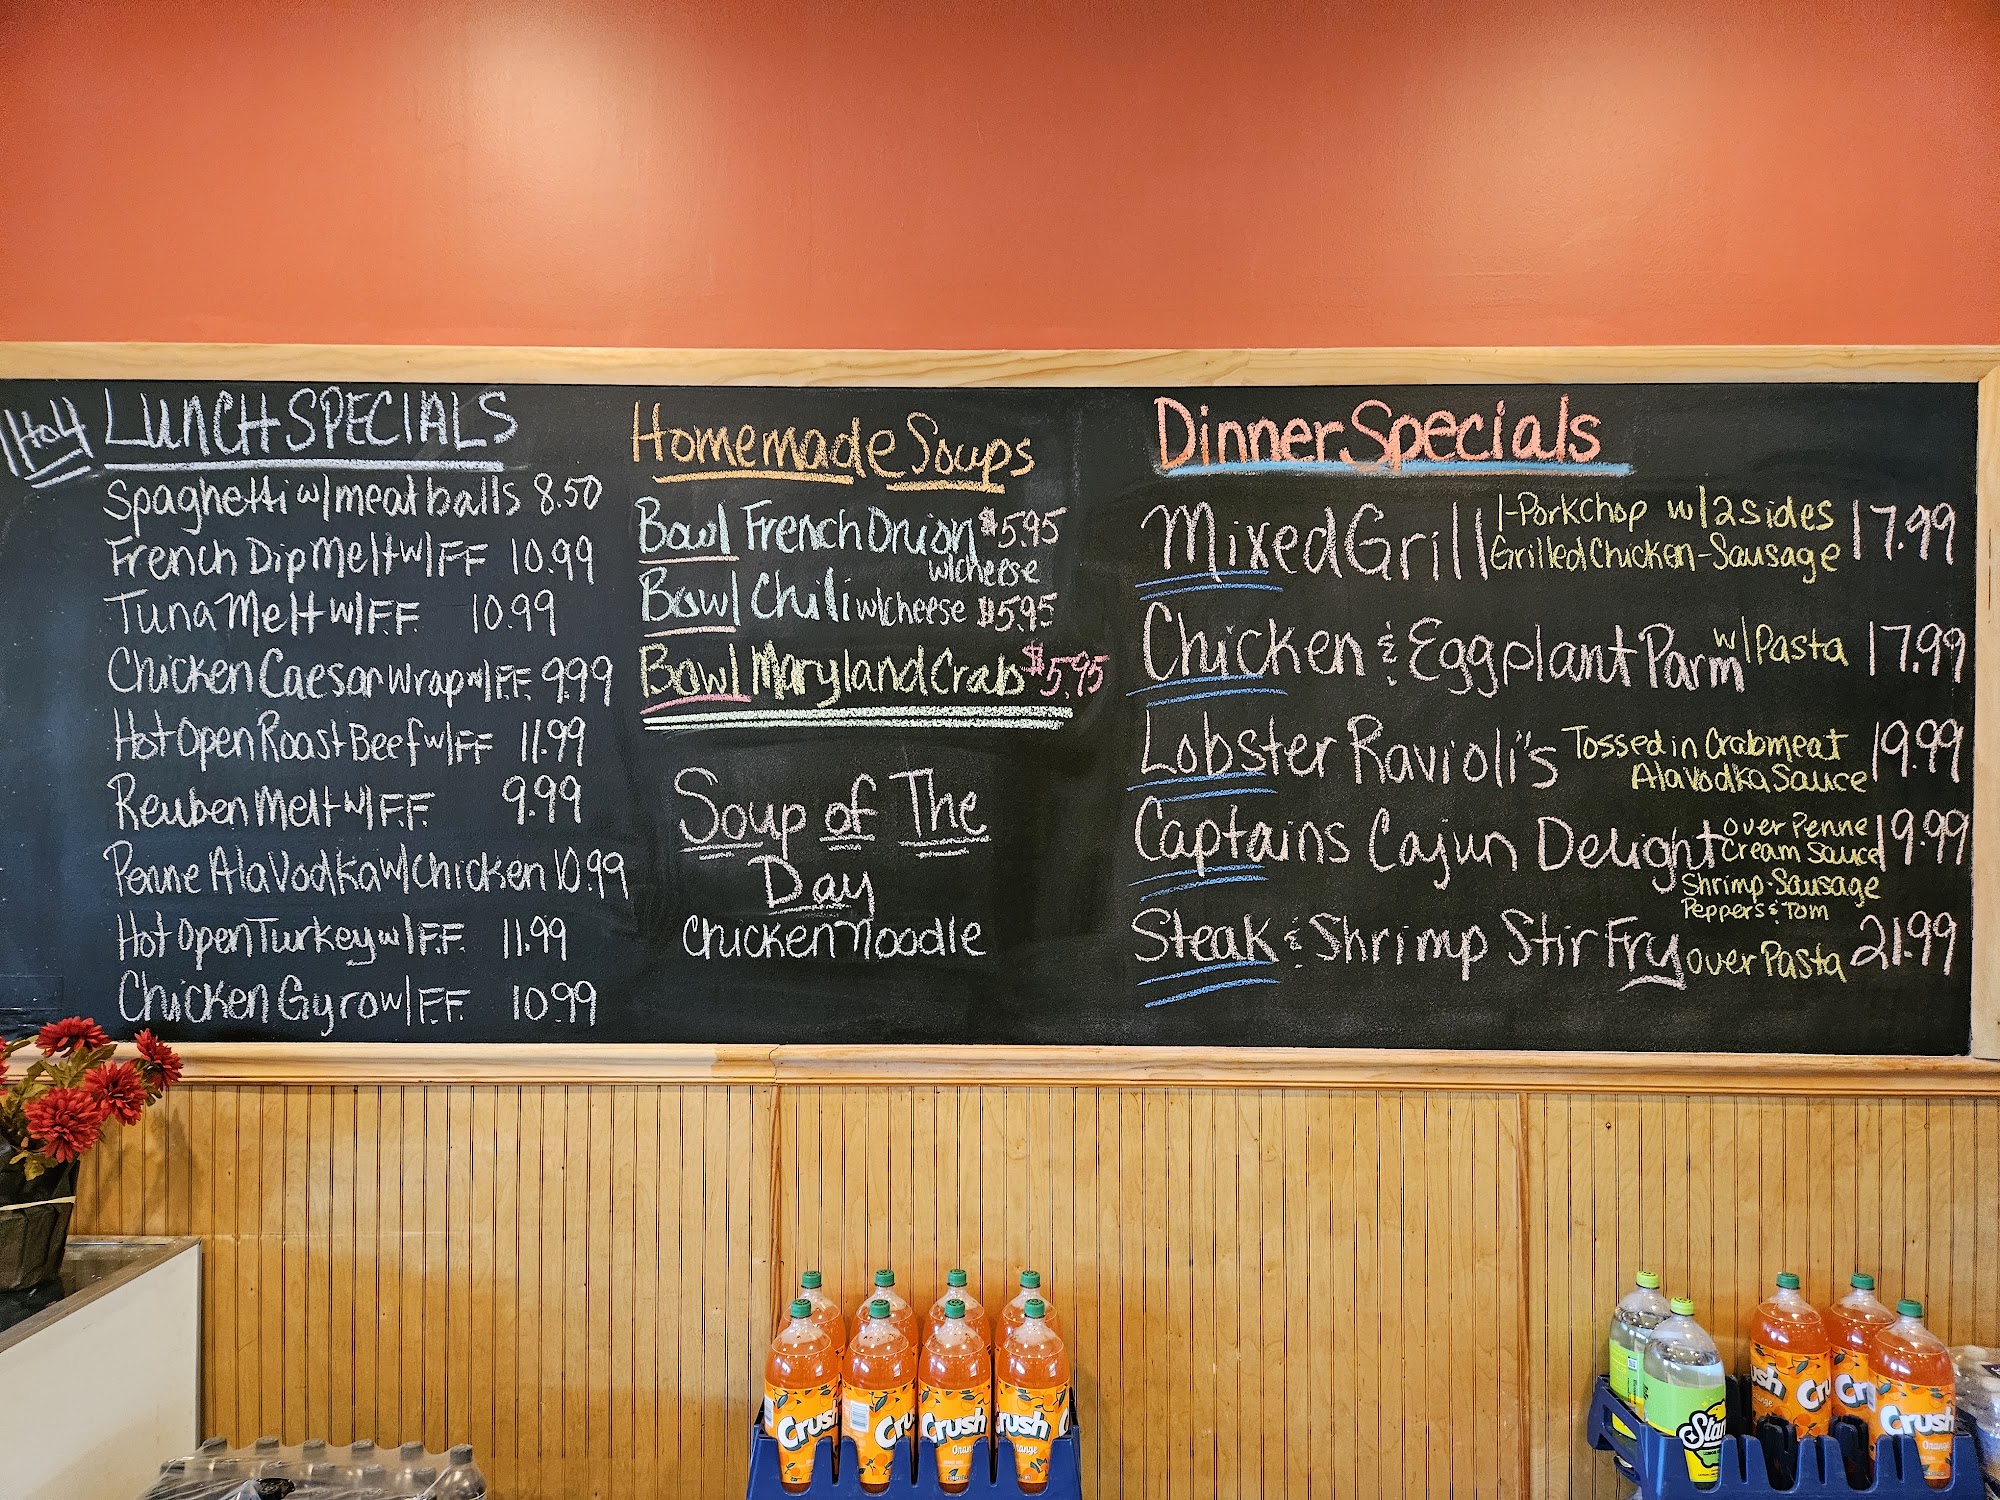 Hot LUNCH SPECIALS
Spaghetti w/meatballs 8.50
French Dip Melt w/FF 10.99
Tuna Melt w/F.F. 10.99
Chicken Caesar Wrap w/F.F. 9.99
Hot Open Roast Beef w/FF 11.99
Reuben Melt w/F.F. 9.99
Penne Ala Vodka w/Chicken 10.99
Hot Open Turkey w/F.F. 11.99
Chicken Gyro w/F.F. 10.99
Homemade Soups
Bowl French Onion $5.95
w/cheese
Bowl Chili w/cheese $5.95
Bowl Maryland Crab $5.95
Soup of The
Day
Chicken Noodle
Dinner Specials
Mixed Grill 1-Pork Chop w/2 sides 17.99
Grilled Chicken-Sausage
Chicken & Eggplant Parm w/Pasta 17.99
Lobster Ravioli"s Tossed in Crabmeat 19.99
Ala Vodka Sauce
Captains Cajun Delight over Penne 19.99
Cream Sauce
Shrimp-Sausage
Peppers & Tom
Steak & Shrimp Stir Fry over Pasta 21.99
Crush
Crush
Crush
Crush
Orange
Crush
Crush
Crush